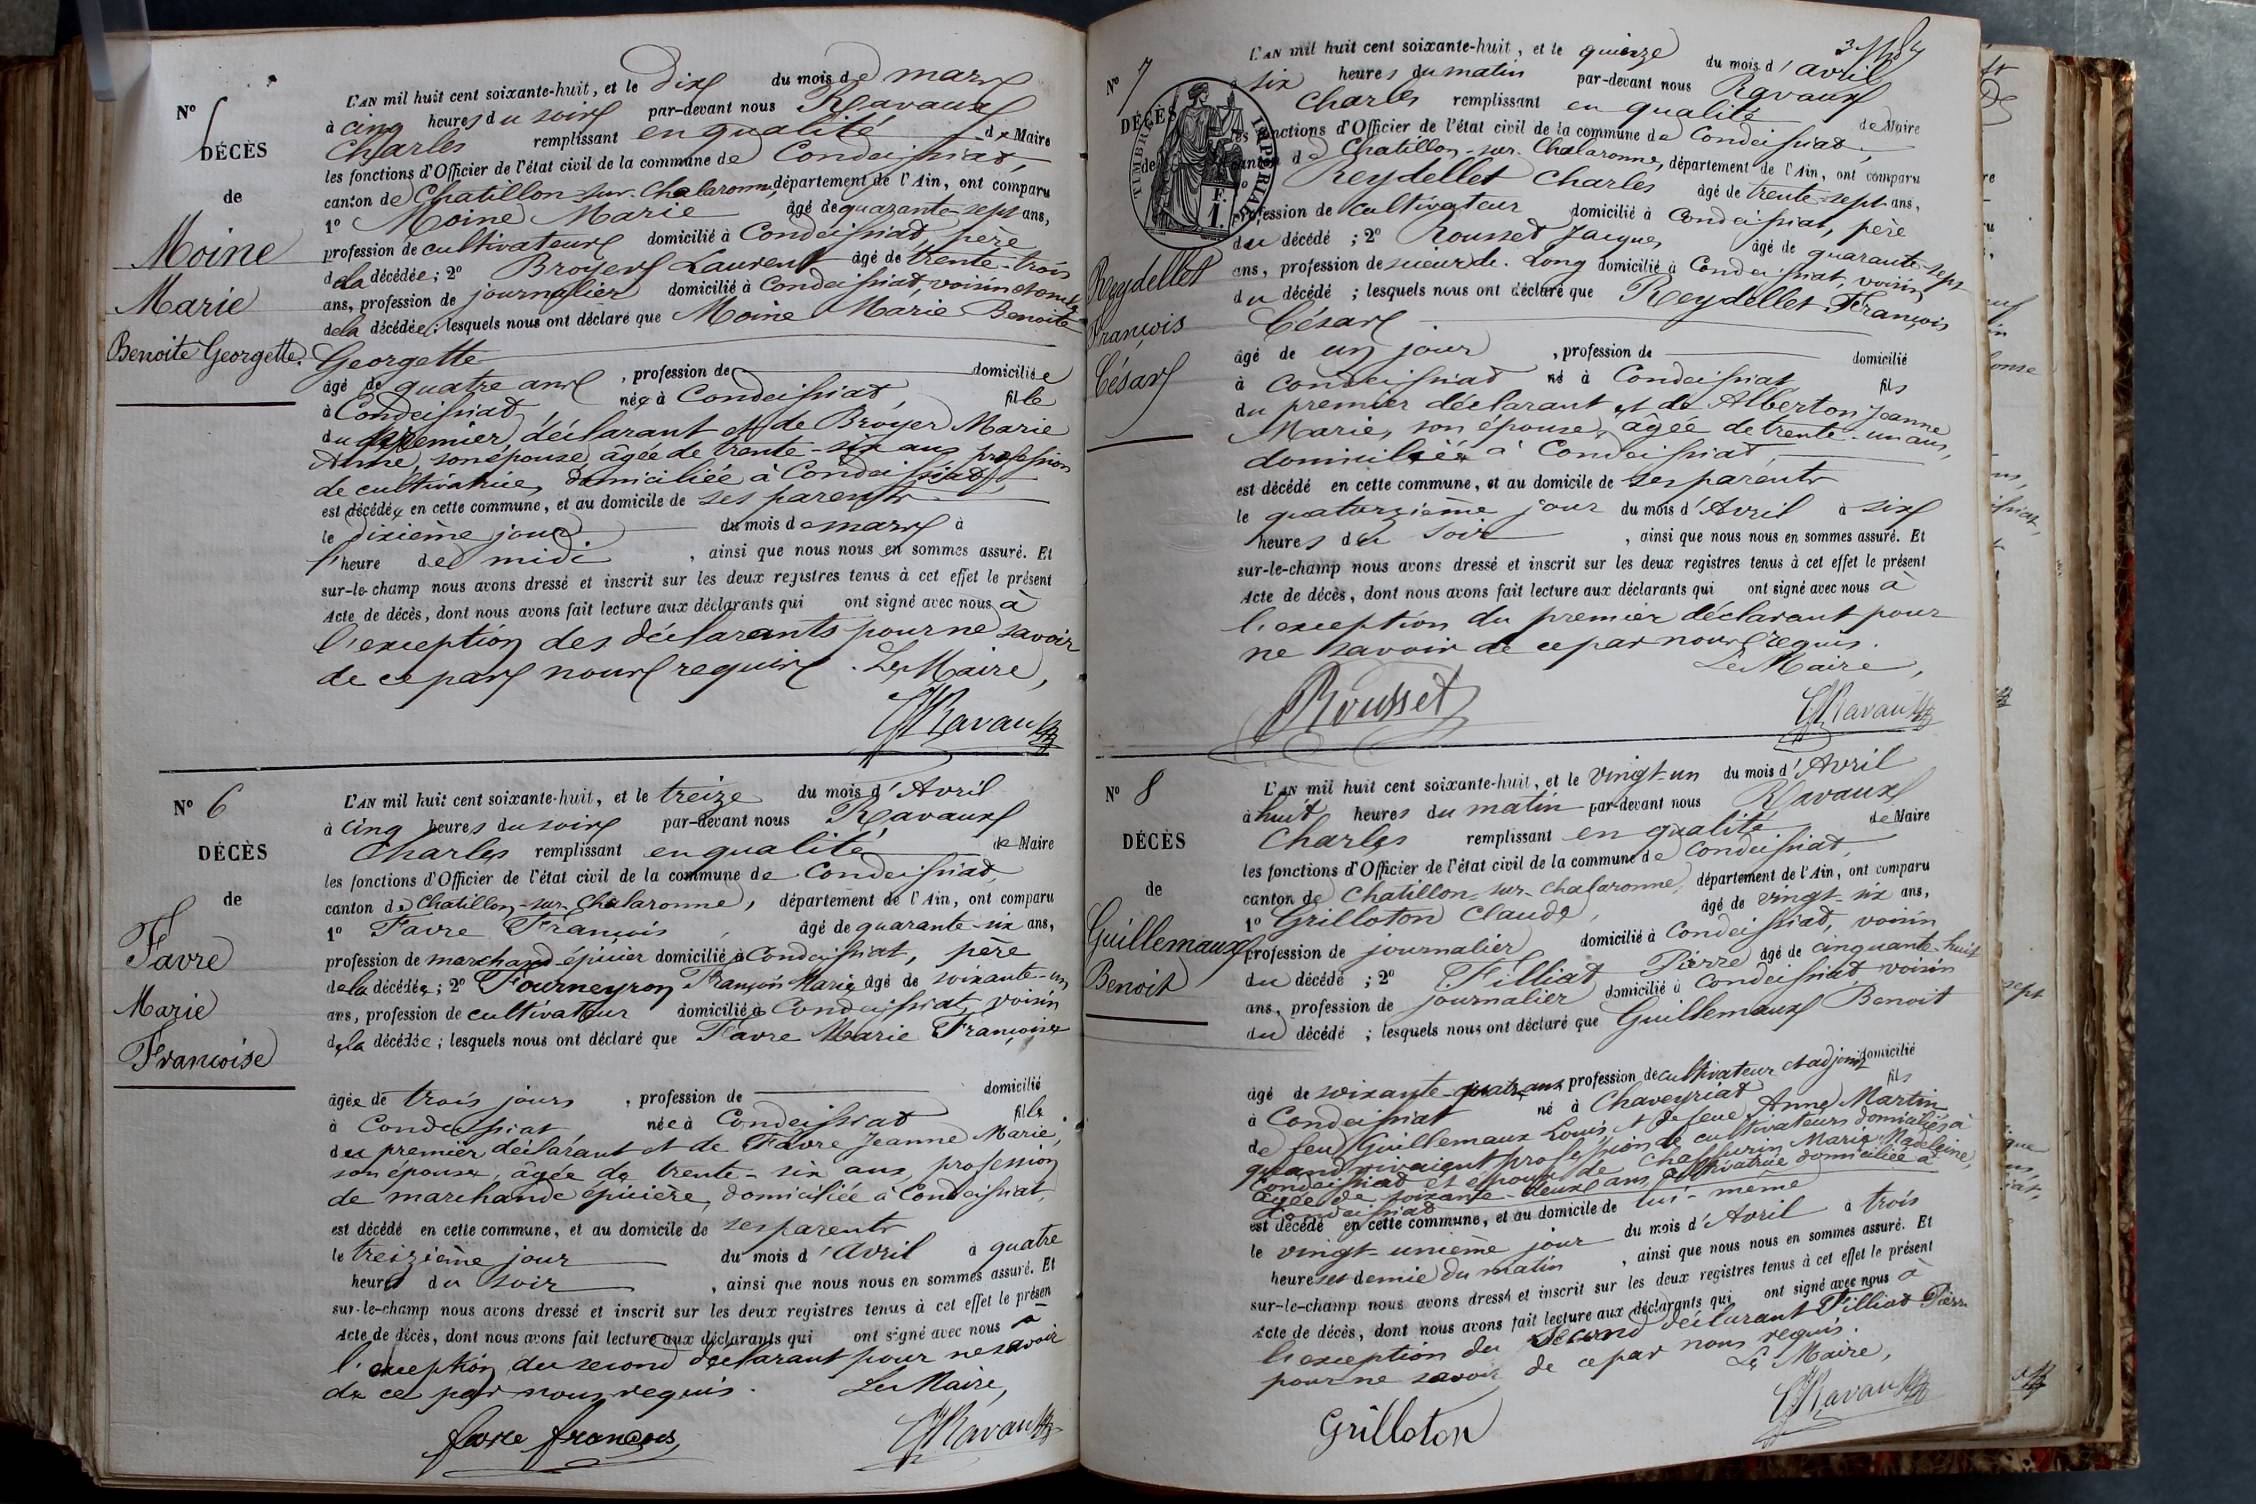 Nº 5
DÉCÈS
de
Moine
Marie
Benoite Georgette.
L'AN mil huit cent soixante-huit, et le dix du mois de mars
à cinq heures du soir par-devant nous Ravaux
Charles remplissant en qualité de Maire
les fonctions d'Officier de l'état civil de la commune de Condeissiat,
canton de Chatillon-sur-Chalaronne, département de l'Ain, ont comparu
1º Moine Marie âgé de quarante-sept ans,
profession de cultivateur domicilié à Condeissiat, père
de la décédée ; 2º Broyer Laurent âgé de trente-trois
ans, profession de journalier domicilié à Condeissiat, voisin et oncle
de la décédée ; lesquels nous ont déclaré que Moine Marie Benoite
Georgette
âgé de quatre ans , profession de domiciliée
à Condeissiat née à Condeissiat, fille
du premier déclarant et de Broyer Marie
Anne, son épouse, âgée de trente-six ans profession
de cultivatrice, domiciliée à Condeissiat,
est décédée en cette commune, et au domicile de ses parents
le dixième jour du mois de mars à
l'heure de midi , ainsi que nous nous en sommes assuré. Et
sur-le-champ nous avons dressé et inscrit sur les deux registres tenus à cet effet le présent
Acte de décès, dont nous avons fait lecture aux déclarants qui ont signé avec nous à
l'exception des déclarants pour ne savoir
de ce par nous requis. Le Maire,
Ch Ravaux
Nº 6
DÉCÈS
de
Favre
Marie
Francoise
L'AN mil huit cent soixante-huit, et le treize du mois d'Avril
à cinq heures du soir par-devant nous Ravaux
Charles remplissant en qualité de Maire
les fonctions d'Officier de l'état civil de la commune de Condeissiat,
canton de Chatillon-sur-Chalaronne, département de l'Ain, ont comparu
1º Favre François, âgé de quarante-six ans,
profession de marchand-épicier domicilié à Condeissiat, père
de la décédée ; 2º Fourneyron François Marie âgé de soixante-un
ans, profession de cultivateur domicilié à Condeissiat, voisin
de la décédée ; lesquels nous ont déclaré que Favre Marie Françoise
âgée de trois jours , profession de domicilié
à Condeissiat née à Condeissiat fille
du premier déclarant et de Favre Jeanne Marie,
son épouse, âgée de trente-six ans, profession
de marchande épicière, domiciliée à Condeissiat,
est décédé en cette commune, et au domicile de ses parents
le treizième jour du mois d'avril à quatre
heures du soir , ainsi que nous nous en sommes assuré. Et
sur-le-champ nous avons dressé et inscrit sur les deux registres tenus à cet effet le présen
Acte de décès, dont nous avons fait lecture aux déclarants qui ont signé avec nous à
l'exception du second déclarant pour ne savoir
de ce par nous requis. Le Maire,
favre françois
Ch Ravaux
Nº 7
DÉCÈS
de
TIMBRE IMPÉRIAL
F. 1.
Reydellet
François
César
L'AN mil huit cent soixante-huit, et le quinze du mois d'avril
à six heures du matin par-devant nous Ravaux
Charles remplissant en qualité de Maire
les fonctions d'Officier de l'état civil de la commune de Condeissiat,
canton de Chatillon-sur-Chalaronne, département de l'Ain, ont comparu
1º Reydellet Charles âgé de trente-sept ans,
profession de cultivateur domicilié à Condeissiat, père
du décédé ; 2º Rousset Jacques âgé de quarante-sept
ans, profession de sieur de long domicilié à Condeissiat, voisin
du décédé ; lesquels nous ont déclaré que Reydellet François
César
âgé de un jour , profession de domicilié
à Condeissiat né à Condeissiat fils
du premier déclarant et de Alberton Jeanne
Marie, son épouse, âgée de trente-un ans,
domiciliée à Condeissiat,
est décédé en cette commune, et au domicile de ses parents
le quatorzième jour du mois d'Avril à six
heures du soir , ainsi que nous nous en sommes assuré. Et
sur-le-champ nous avons dressé et inscrit sur les deux registres tenus à cet effet le présent
Acte de décès, dont nous avons fait lecture aux déclarants qui ont signé avec nous à
l'exception du premier déclarant pour
ne savoir de ce par nous requis.
Le Maire,
Rousset
Ch Ravaux
Nº 8
DÉCÈS
de
Guillemaux
Benoit
L'AN mil huit cent soixante-huit, et le vingt-un du mois d'Avril
à huit heures du matin par-devant nous Ravaux
Charles remplissant en qualité de Maire
les fonctions d'Officier de l'état civil de la commune de Condeissiat,
canton de Chatillon-sur-Chalaronne, département de l'Ain, ont comparu
1º Grilloton Claude, âgé de vingt-six ans,
profession de journalier domicilié à Condeissiat, voisin
du décédé ; 2º Filliat Pierre âgé de cinquante-huit
ans, profession de journalier domicilié à Condeissiat voisin
du décédé ; lesquels nous ont déclaré que Guillemaux Benoit
âgé de soixante-quatre ans profession de cultivateur et adjoint domicilié
à Condeissiat né à Chaveyriat fils
de feu Guillemaux Louis et de feue Anne Martin
quand vivaient profession de cultivateurs domiciliés à
Condeissiat et époux de Marie Madeleine,
âgée de soixante-deux ans, cultivatrice domiciliée à
Condeissiat
est décédé en cette commune, et au domicile de lui-même
le vingt-unième jour du mois d'Avril à trois
heures et demie du matin , ainsi que nous nous en sommes assuré. Et
sur-le-champ nous avons dressé et inscrit sur les deux registres tenus à cet effet le présent
Acte de décès, dont nous avons fait lecture aux déclarants qui ont signé avec nous à
l'exception du second déclarant Filliat Pierre
pour ne savoir de ce par nous requis.
Le Maire,
Grilloton
Ch Ravaux